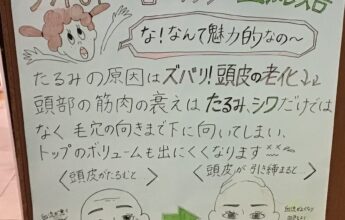 な!なんて魅力的なの〜
たるみの原因はズバリ!頭皮の老化↓↓
頭部の筋肉の衰えはたるみ、シワだけでは
なく毛穴の向きまで下に向いてしまい、
トップのボリュームも出にくくなります
〈頭皮がたるむと〉 〈頭皮が引き締まると〉